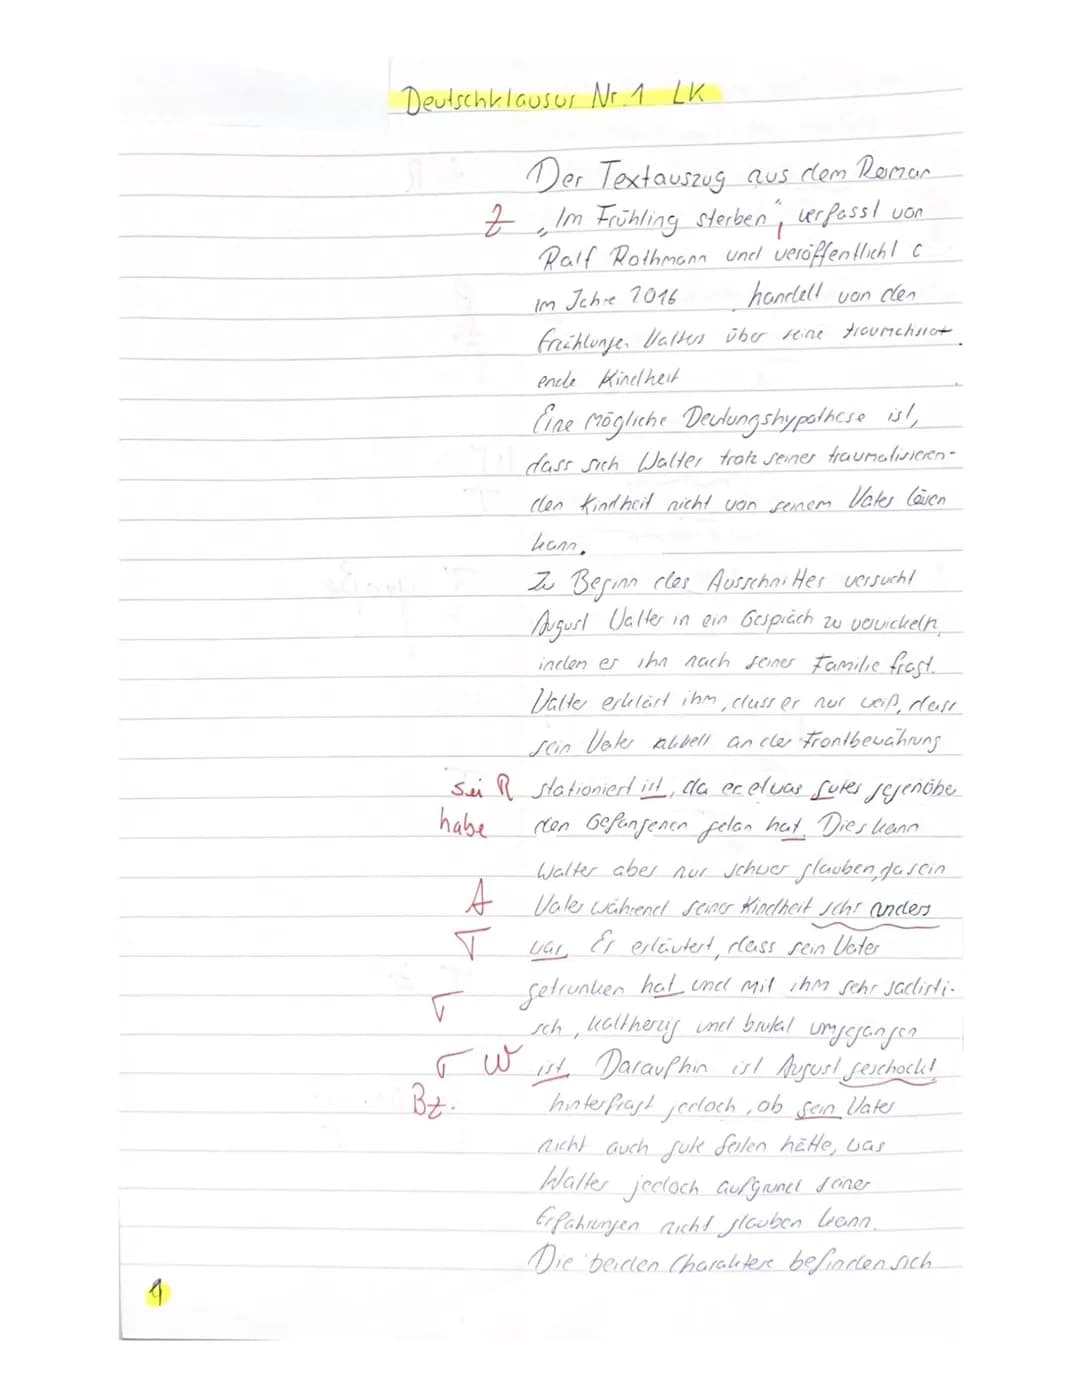 Deutschklausur Nr. 1 LK
Der Textauszug aus dem Roman
Z „Im Frühling sterben", verfasst von
Ralf Rothmann und veröffentlicht
im Jahre 2016 handelt von den
Erzählungen Walters über seine
ende Kindheit
Eine mögliche Deutungshypothese ist,
dass sich Walter trotz seiner traumatisieren-
den Kindheit nicht von seinem Vater lösen
kann.
Zu Beginn des Ausschnittes versucht
August Walter in ein Gespräch zu verwickeln,
indem er ihn nach seiner Familie fragt.
Walter erklärt ihm, dass er nur weiß, dass
sein Vater aktuell an der Frontbewährung
sei R stationiert ist, da er etwas gutes gegenüber
habe den Gefangenen getan hat. Dies kann
Walter aber nur schwer glauben, da sein
A Vater während seiner Kindheit sehr anders
T war. Er erläutert, dass sein Vater
getrunken hat und mit ihm sehr sadisti-
T sch, kaltherzig und brutal umgegangen
T W ist. Daraufhin ist August geschockt
Bz. hinterfragt jedoch, ob sein Vater
nicht auch gute Seiten hätte, was
Walter jedoch aufgrund seiner
Erfahrungen nicht glauben kann.
Die beiden Charaktere befinden sich
1